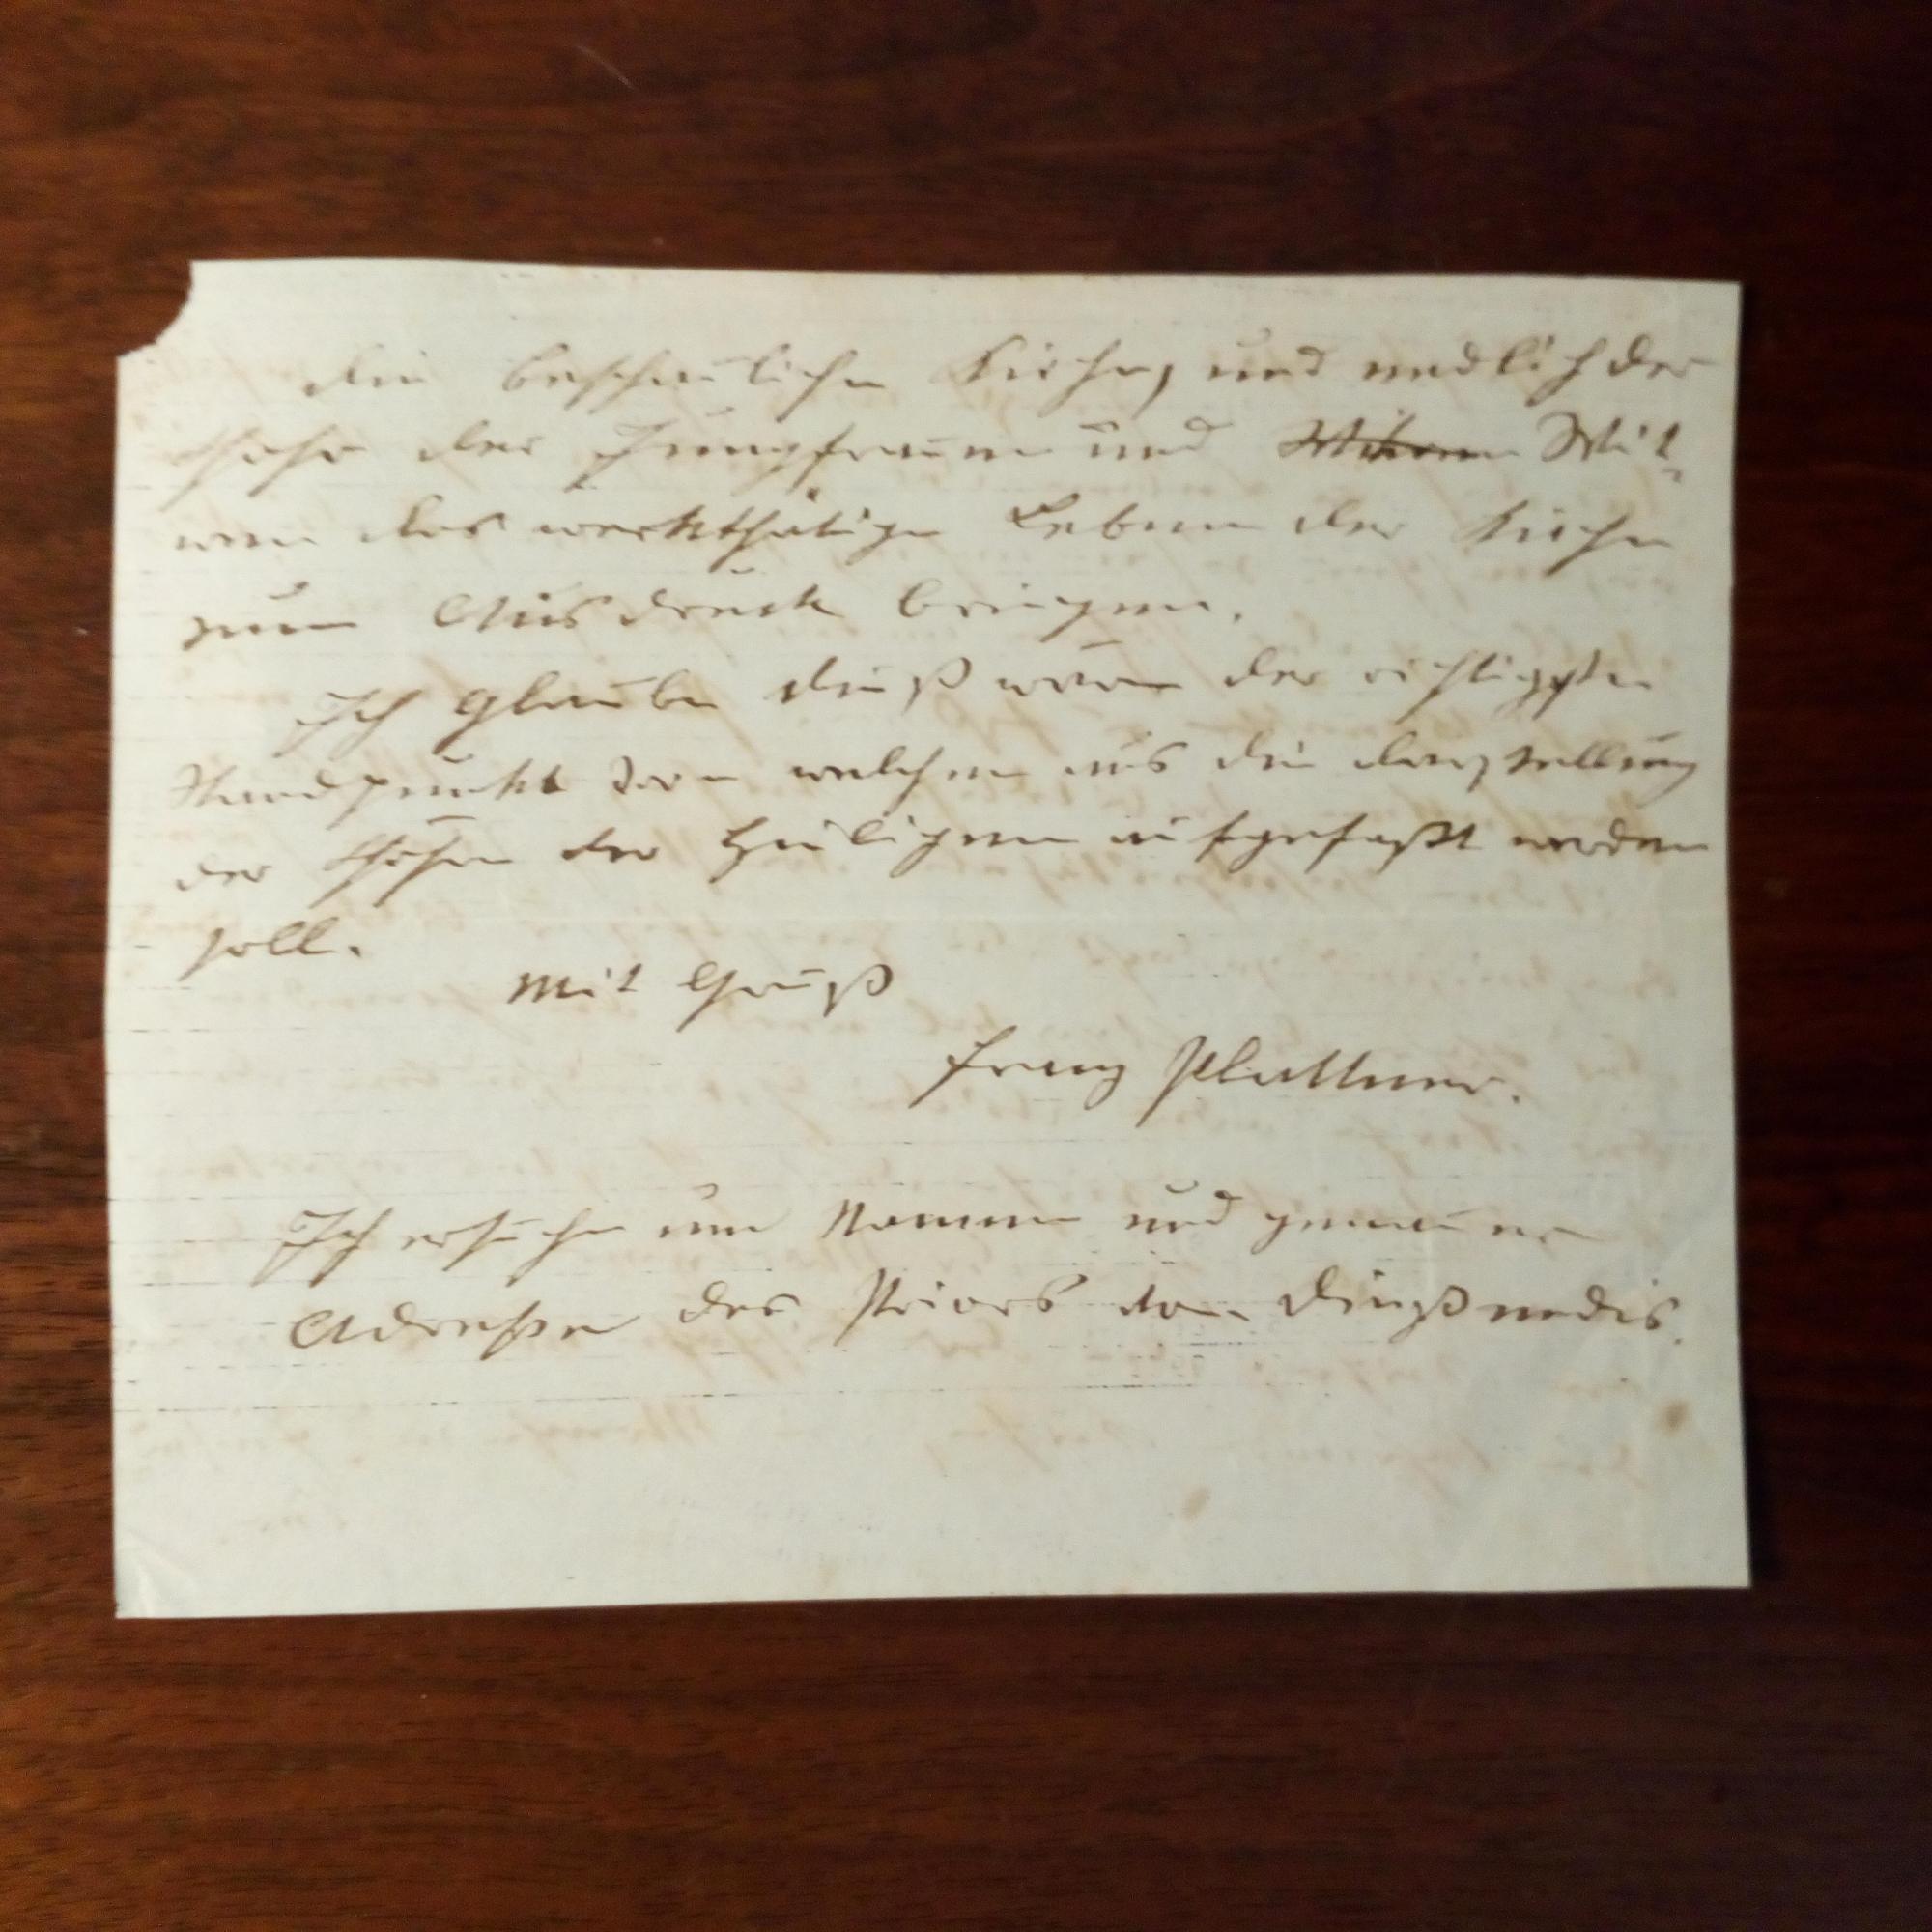 die beschauliche Kirche, und endlich der
Chohr der Jungfrauen und Wit-
wen das werkthätige Leben der Kirche
zum Ausdruck bringen.
Ich glaube dieß wäre der richtigste
Standpunkt von welchem aus die darstellung
der Chöhre der Heiligen aufgefaßt werden
soll.
Mit Gruß
Franz Plattner.
Ich ersuche um Namen und genauere
Adreße des Priors von Dießendis.